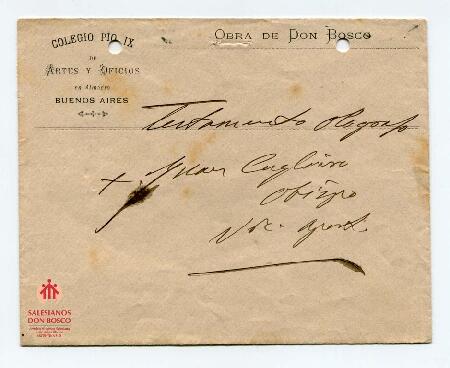 COLEGIO PIO IX
DE
ARTES Y OFICIOS
en Almagro
BUENOS AIRES
OBRA DE DON BOSCO
Testamento
+ Juan Cagliero
Obispo
SALESIANOS
DON BOSCO